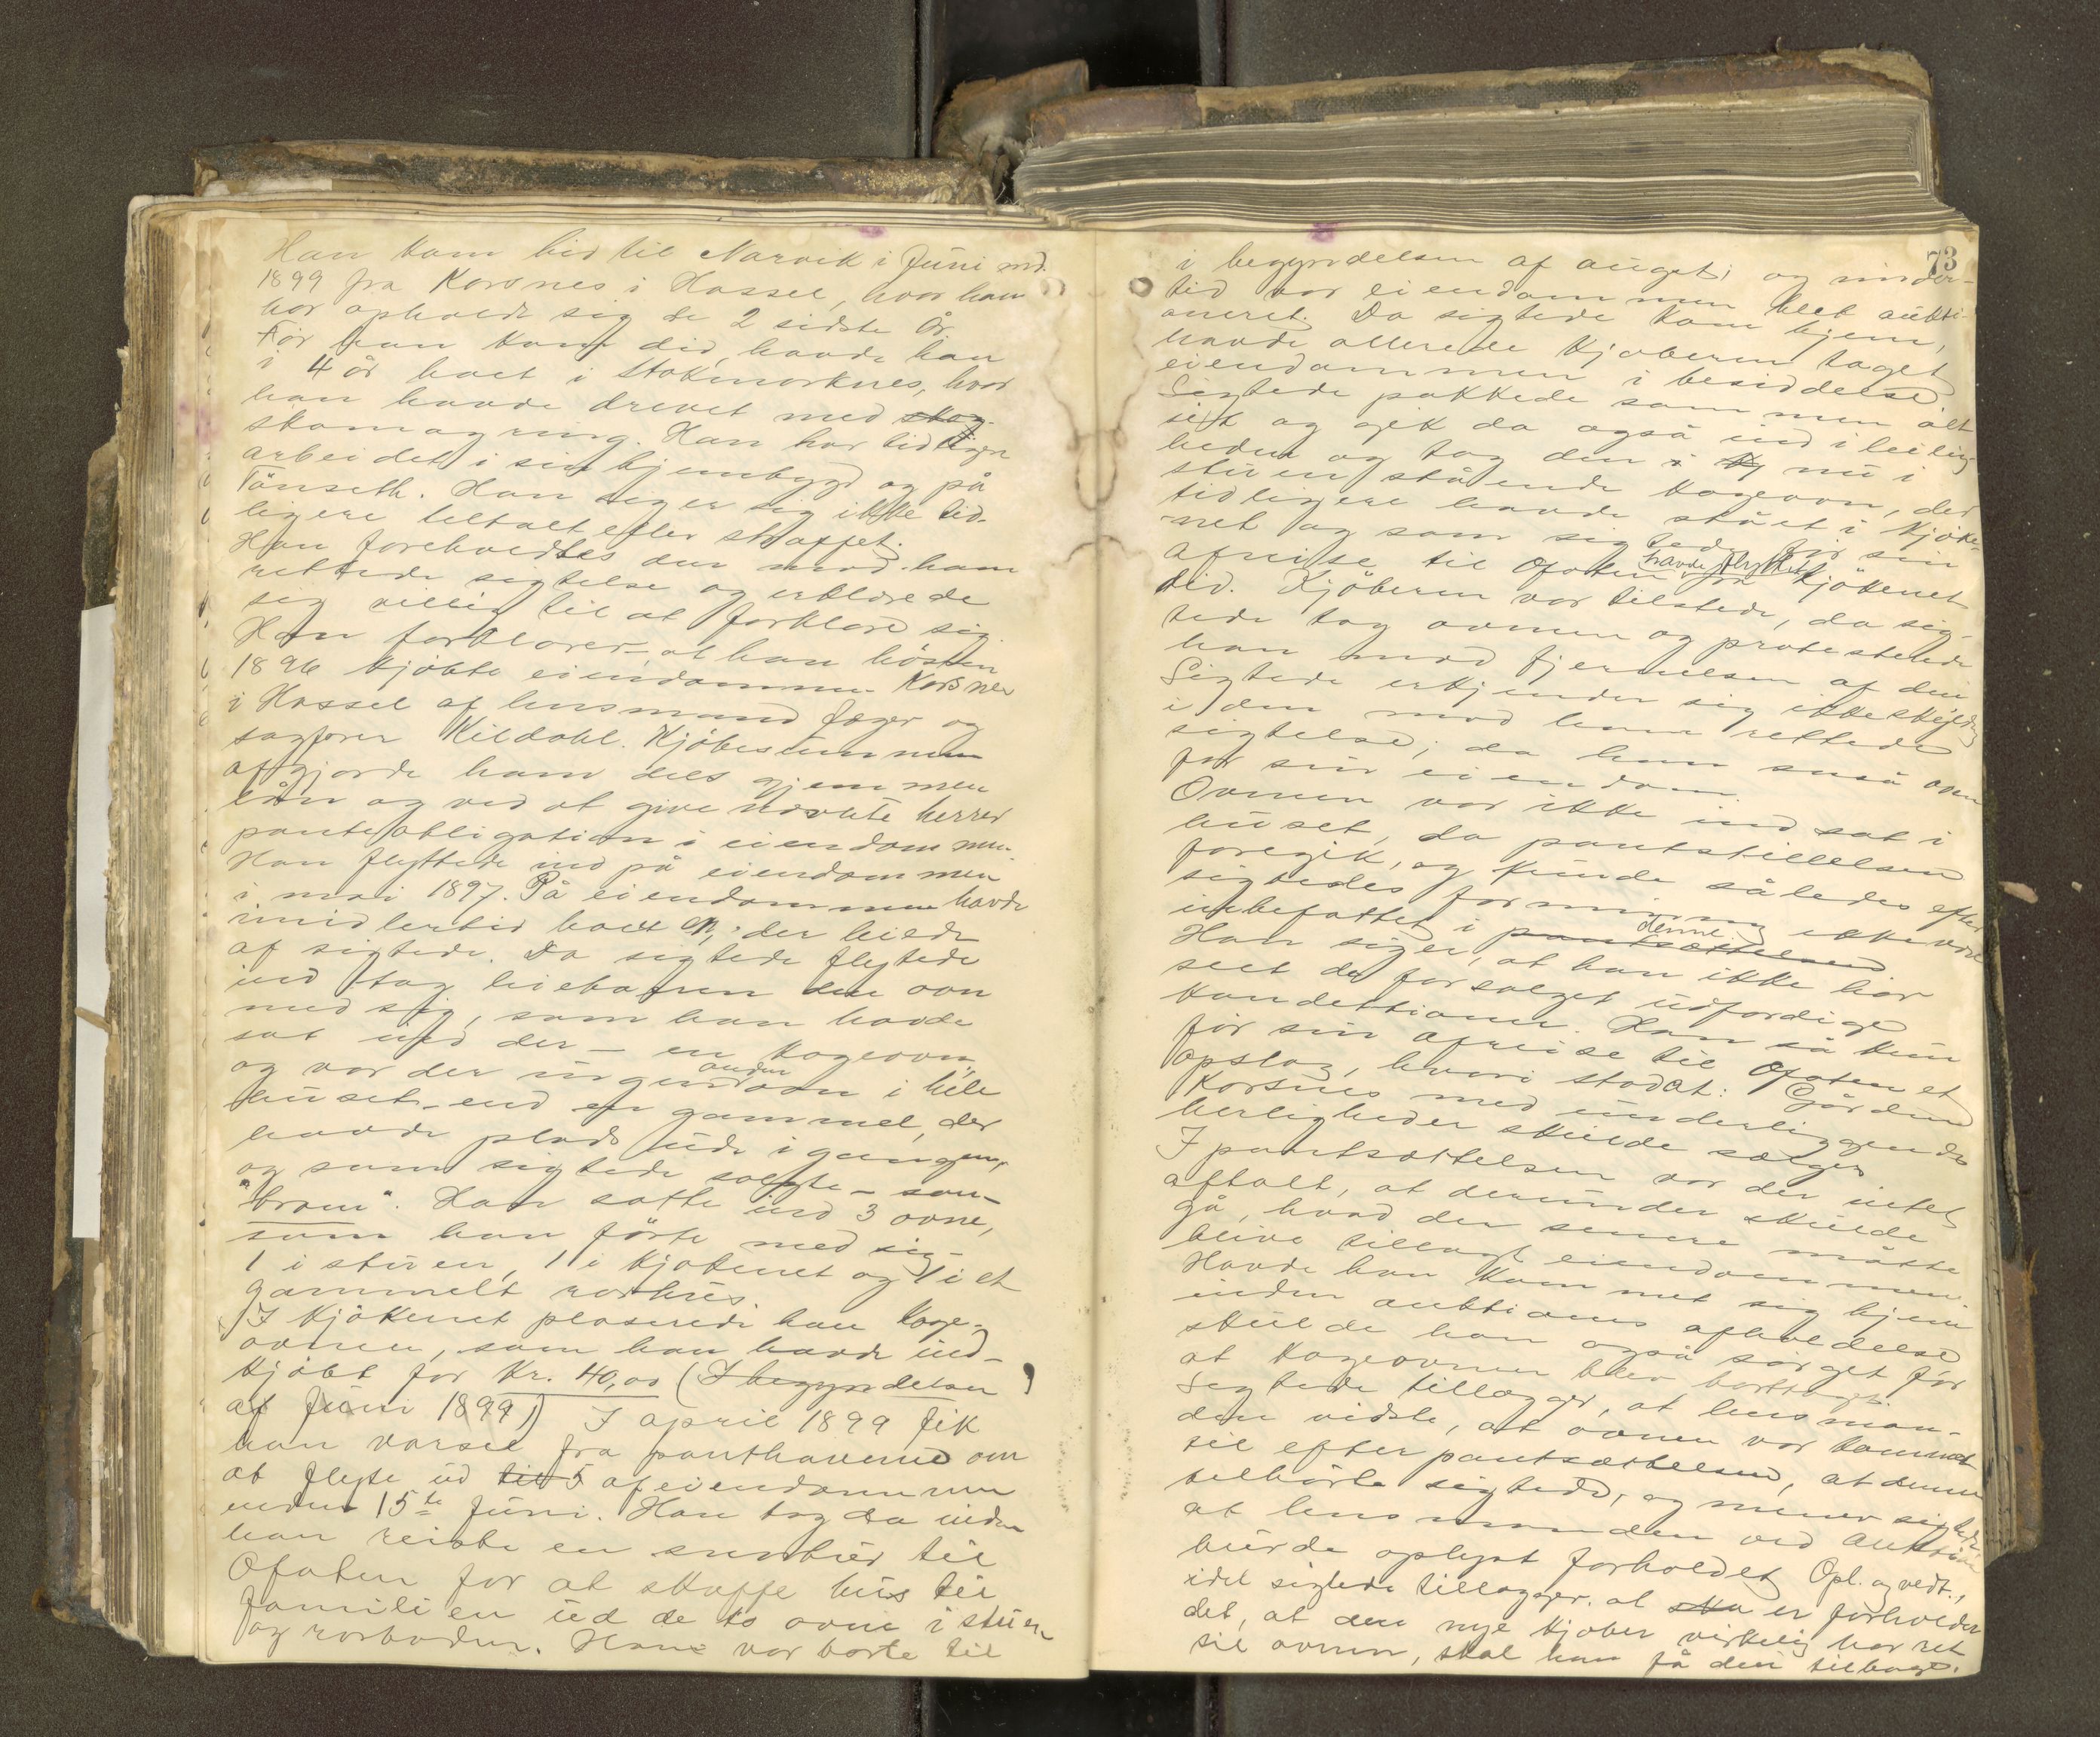 Han kom hid til Narvik i Juni md.
1899 fra Korsnes i Hassel, hvor han
har opholdt sig de 2 sidste år.
Før han kom did, havde han
i 4 år boet i Stokmarknes, hvor
han havde drevet med skog-
skomagring. Han har tidligere
arbeidet i sin hjembygd og på
Tönseth. Han siger sig ikke tid-
ligere tiltalt eller straffet.
Han foreholdtes den mod ham
rettede sigtelse og erklærede
sig villig til at forklare sig.
Han forklarer, at han hösten
1896 kjöbte eiendommen Korsnes
i Hassel af lensmand Jæger og
sagfører Kildahl. Kjöbesummen
afgjorde ham dels gjennem
lån og ved at give nævnte herrer
panteobligation i eiendommen.
Han flyttede ind på eiendommen
i mai 1897. På eiendommen havde
imidlertid boet en, der leiede
af sigtede. Da sigtede flytede
ind tog leieboeren den ovn
med sig, som han havde
sat ind der – en kogeovn,
og var der ingen anden ovn i hele
huset end en gammel, der
havde plads ude i gangen,
og som sigtede solgte – som
"bram". Han satte ind 3 ovne,
som han förte med sig –
1 i stuen, 1 i kjökenet og 1 i et
gammelt rorhus.
I kjökenet plaserede han koge-
ovnen, som han havde ind-
kjöbt for Kr. 40,00 (I begyndelsen
af Juni 1899) I april 1899 fik
han varsel fra panthaverne om
at flyte ud til 5 af eiendommen
inden 15de Juni. Han tog da inden
han reiste en snartur til
Ofoten for at skaffe hus til
familien ud de to ovne i stuen
og rorboden. Han var borte til
73
i begyndelsen af august og imidler-
tid var eiendommen blet aukti-
oneret. Da sigtede kom hjem,
havde allerede kjøberen taget
eiendommen i besiddelse
Sigtede pakkede sammen alt
sit og gik da også ind i leilig-
heden og tog den i kj nu i
stuen stående kogeovn, der
tidligere havde stået i kjöke-
net og som sigtede før sin
afreise til Ofoten havde flyttet fra kjökenet
did. Kjöberen var tilstede, da sig-
tede tog ovnen og protesterede
han mod fjernelsen af den
Sigtede erkjender sig ikke skyldig
i den mod ham rettede
sigtelse, da han så ovnen
for sin eiendom.
Ovnen var ikke indsat i
huset, da pantstillelsen
foregik, og kunde således efter
sigtedes formening ikke være
indbefattet i pantsættelsen denne
Han siger, at han ikke har
seet de for salget udfærdige
konditioner. Han så kun
för sin afreise til Ofoten et
opslag, hvori stod at: Gården
Korsnes med underliggende
herligheder skulde sælges
I pantsættelsen var der intet
aftalt, at derunder skulde
gå, hvad der senere måtte
blive tillagt eiendommen.
Havde han kommet sig hjem
inden auktions afholdelse
skulde han også sørget for
at kogeovnen blev borttaget.
Sigtede tillægger, at lensman-
den vidste, at ovnen var kommet
til efter pantsættelsen, at denne
tilhörte sigtede, og mener sigtede
at lensmanden ved auktionen
burde oplyst forholdet Opl. og vedt.,
idet sigtede tillægger, at ska er forholdet
det, at den nye kjøber virkelig har ret
til ovnen, skal han få den tilbage.